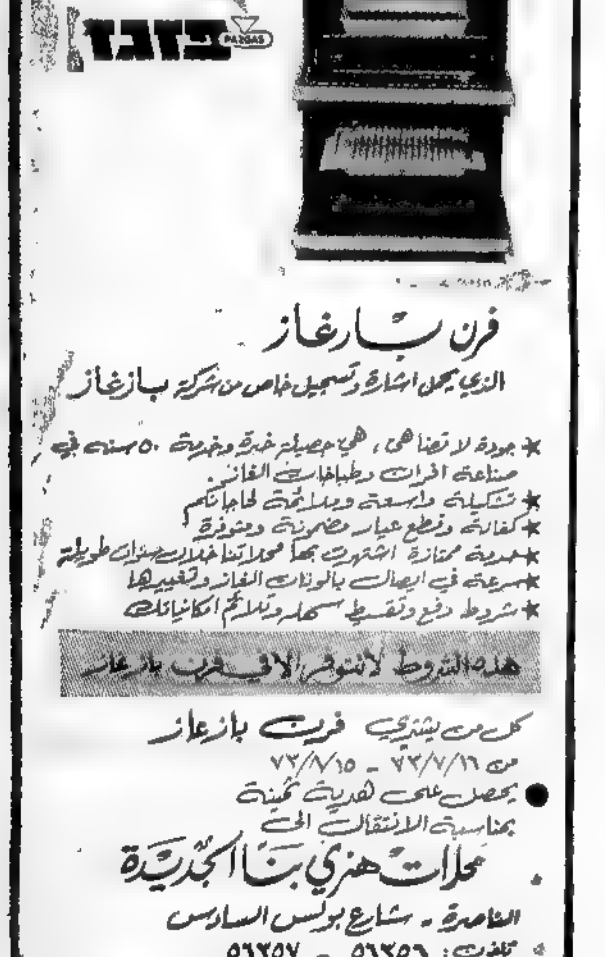 פזגז
PAZGAS
فرن بازغاز
الذي يحمل اشارة وتسجيل خاص من شركة بازغاز
* جودة لا تضاهى، هي حصيلة خبرة وخدمة ٥٠ سنه في
صناعة افران وطباخات الغاز.
* تشكيلة واسعة وملائمة لحاجاتكم
* كفالة وقطع غيار مضمونة ومتوفرة
* خدمة ممتازة اشتهرت بها محلاتنا خلال سنوات طويلة
* سرعة في ايصال بالونات الغاز وتغييرها
* شروط دفع وتقسيط سهله وتلائم امكانياتك
هذه الشروط لا تتوفر الا في فرن بازغاز
كل من يشتري فرن بازغاز
من ٧٢/٧/١٦ - ٧٢/٨/١٥
يحصل على هدية ثمينة
بمناسبة الانتقال الى
محلات هنري بنا الجديدة
الناصرة - شارع بولس السادس
تلفون: ٥٦٢٥٦ - ٥٦٢٥٧